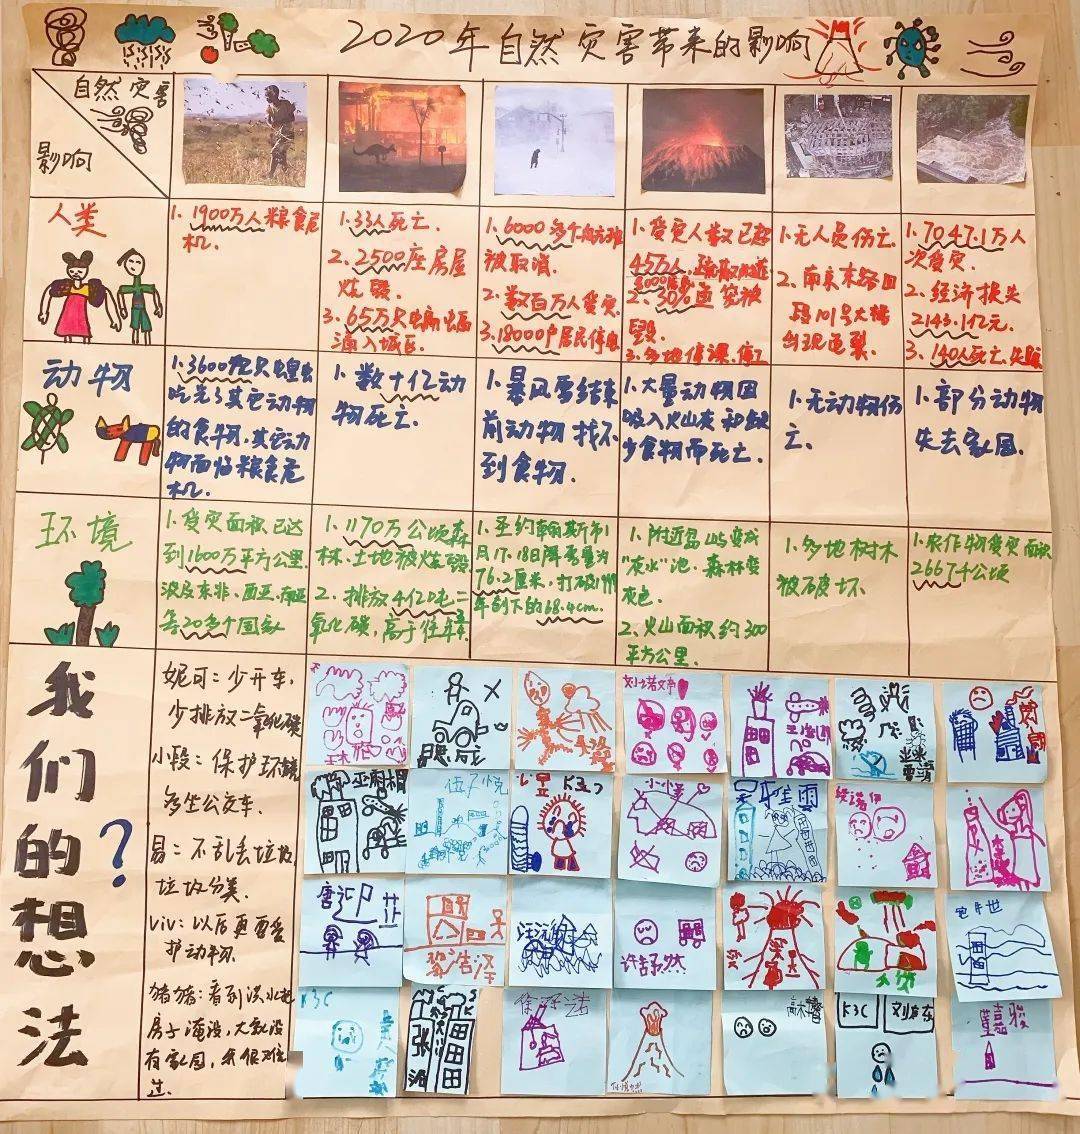 2020年自然灾害带来的影响
自然灾害
影响
人类
1.1900万人粮食危
机.
1.33人死亡.
2.2500座房屋
烧毁.
3.65万只
涌入城区.
1.6000多个航班
被取消.
2.数百万人受灾.
3.18000户居民停电
1.受灾人数已超
45万人
2.30%
毁
3.多地停课,停工
1.无人员伤亡.
2.南京东路四
段101号大楼
出现龟裂.
1.7047.1万人
次受灾.
2.经济损失
2143.1亿元.
3.140人死亡失踪
动物
1.3600亿只蝗虫
吃完了其它动物
的食物,其它动
物面临粮食危
机.
1.数十亿动
物死亡.
1.暴风雪结束
前动物找不
到食物.
1.大量动物因
吸入火山灰和缺
少食物而死亡.
1.无动物伤
亡.
1.部分动物
失去家园.
环境
1.受灾面积已达
到1600万平方公里.
波及东非、西亚、南亚
等20多个国家
1.1170万公顷森
林、土地被烧毁
2.排放4亿吨二
氧化碳,高于往年
1.圣约翰斯市1
月17.18日降雪量为
76.2厘米,打破1999
年创下的68.4cm.
1.附近岛屿变成
"灰水"池.森林变
灰色.
2.火山面积约300
平方公里.
1.多地树木
被破坏.
1.农作物受灾面积
26674公顷
我们的想法?
妮可:少开车,
少排放二氧化碳
小段:保护环境
多坐公交车.
易:不乱丢垃圾
垃圾分类.
Viv:以后更要爱
护动物.
猪猪:看到洪水把
房子淹没,大家没
有家园,我很难
过.
K3C
黎浩泽
K3C